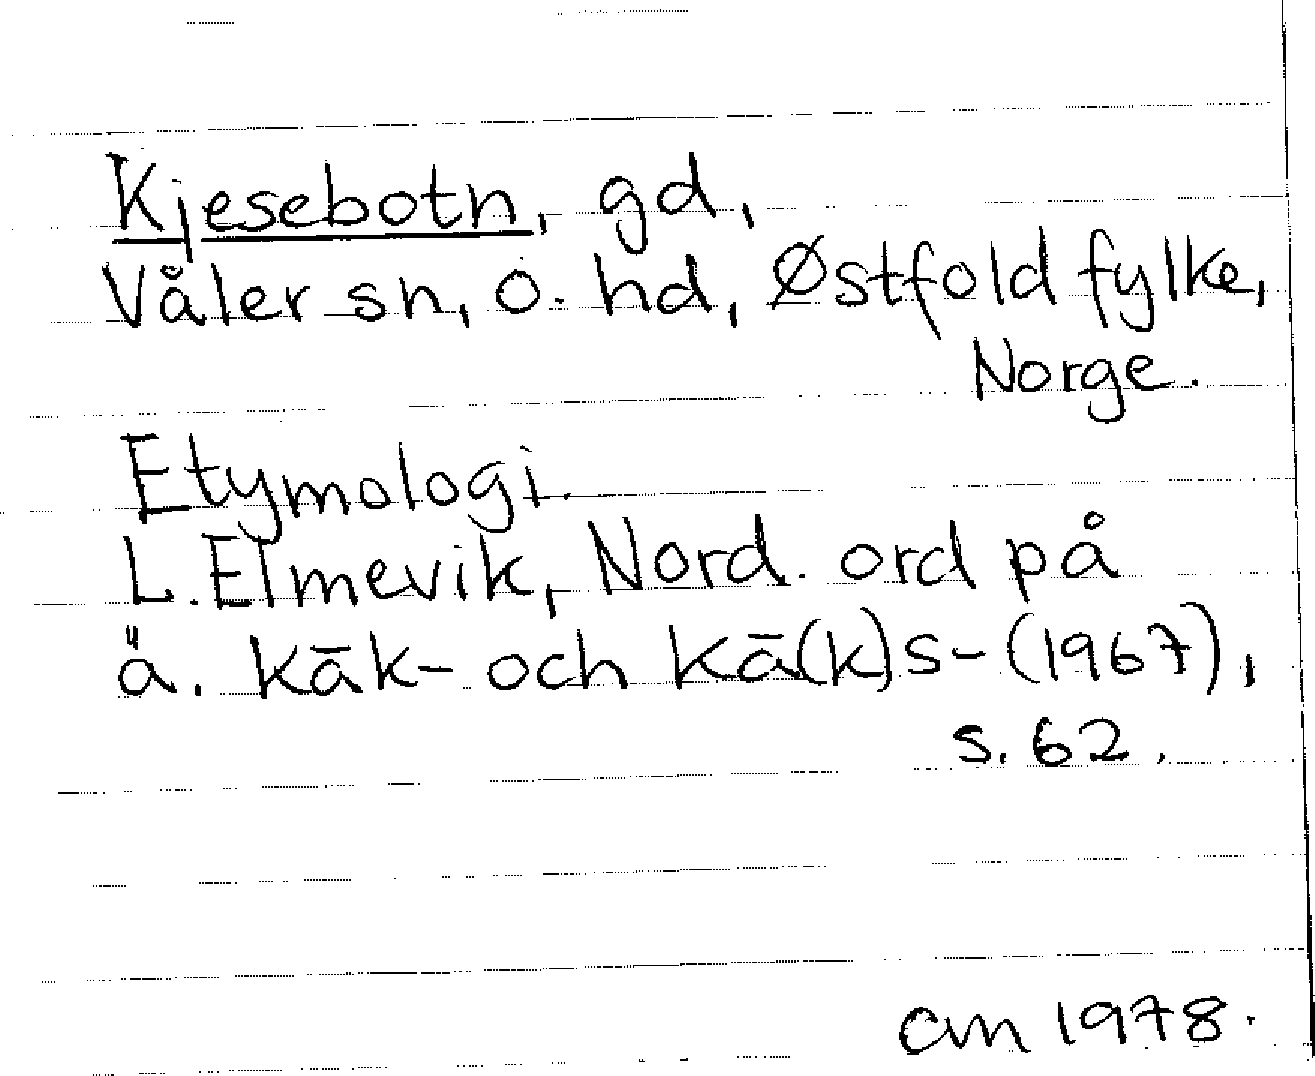 Kjesebotn, gd,
Våler sn, o. hd, Østfold fylke,
Norge.
Etymologi.
L. Elmevik, Nord. ord på
ä. kāk- och kā(k)s- (1967),
s. 62.
cm 1978.